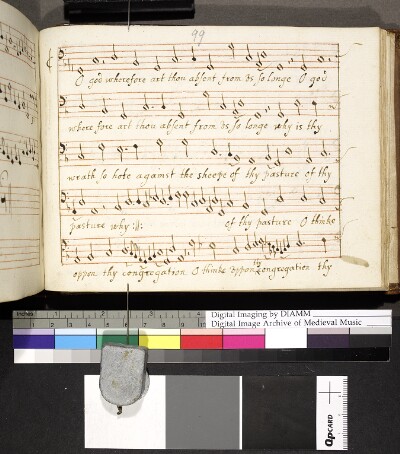 99
O god wherefore art thou absent from vs so longe O god
where fore art thou absent from vs so longe why is thy
wrath so hote against the sheepe of thy pasture of thy
pasture why :||: of thy pasture O thinke
oppon thy congregation O thinke oppon thy congregation thy
inches 1 2 3 4
Digital Imaging by DIAMM
Digital Image Archive of Medieval Music
QPCARD